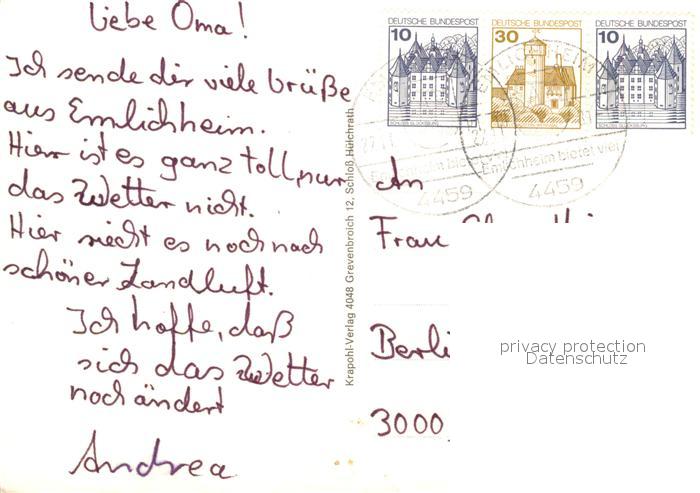 Liebe Oma!
Ich sende dir viele Grüße
aus Emlichheim.
Hier ist es ganz toll, nur
das Wetter nicht.
Hier riecht es noch nach
schöner Landluft.
Ich hoffe, daß
sich das Wetter
noch ändert
Andrea
Krapohl-Verlag 4048 Grevenbroich 12, Schloß Hülchrath
DEUTSCHE BUNDESPOST
10
SCHLOSS GLÜCKSBURG
DEUTSCHE BUNDESPOST
30
DEUTSCHE BUNDESPOST
10
SCHLOSS GLÜCKSBURG
EMLICHHEIM
Emlichheim bietet viel
4459
4459
An
Frau
Berli
3000
privacy protection
Datenschutz